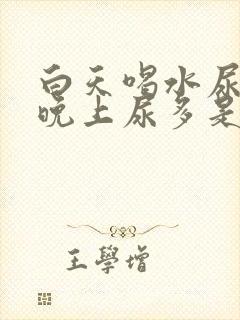 白天喝水尿
晚上尿多是
王學增